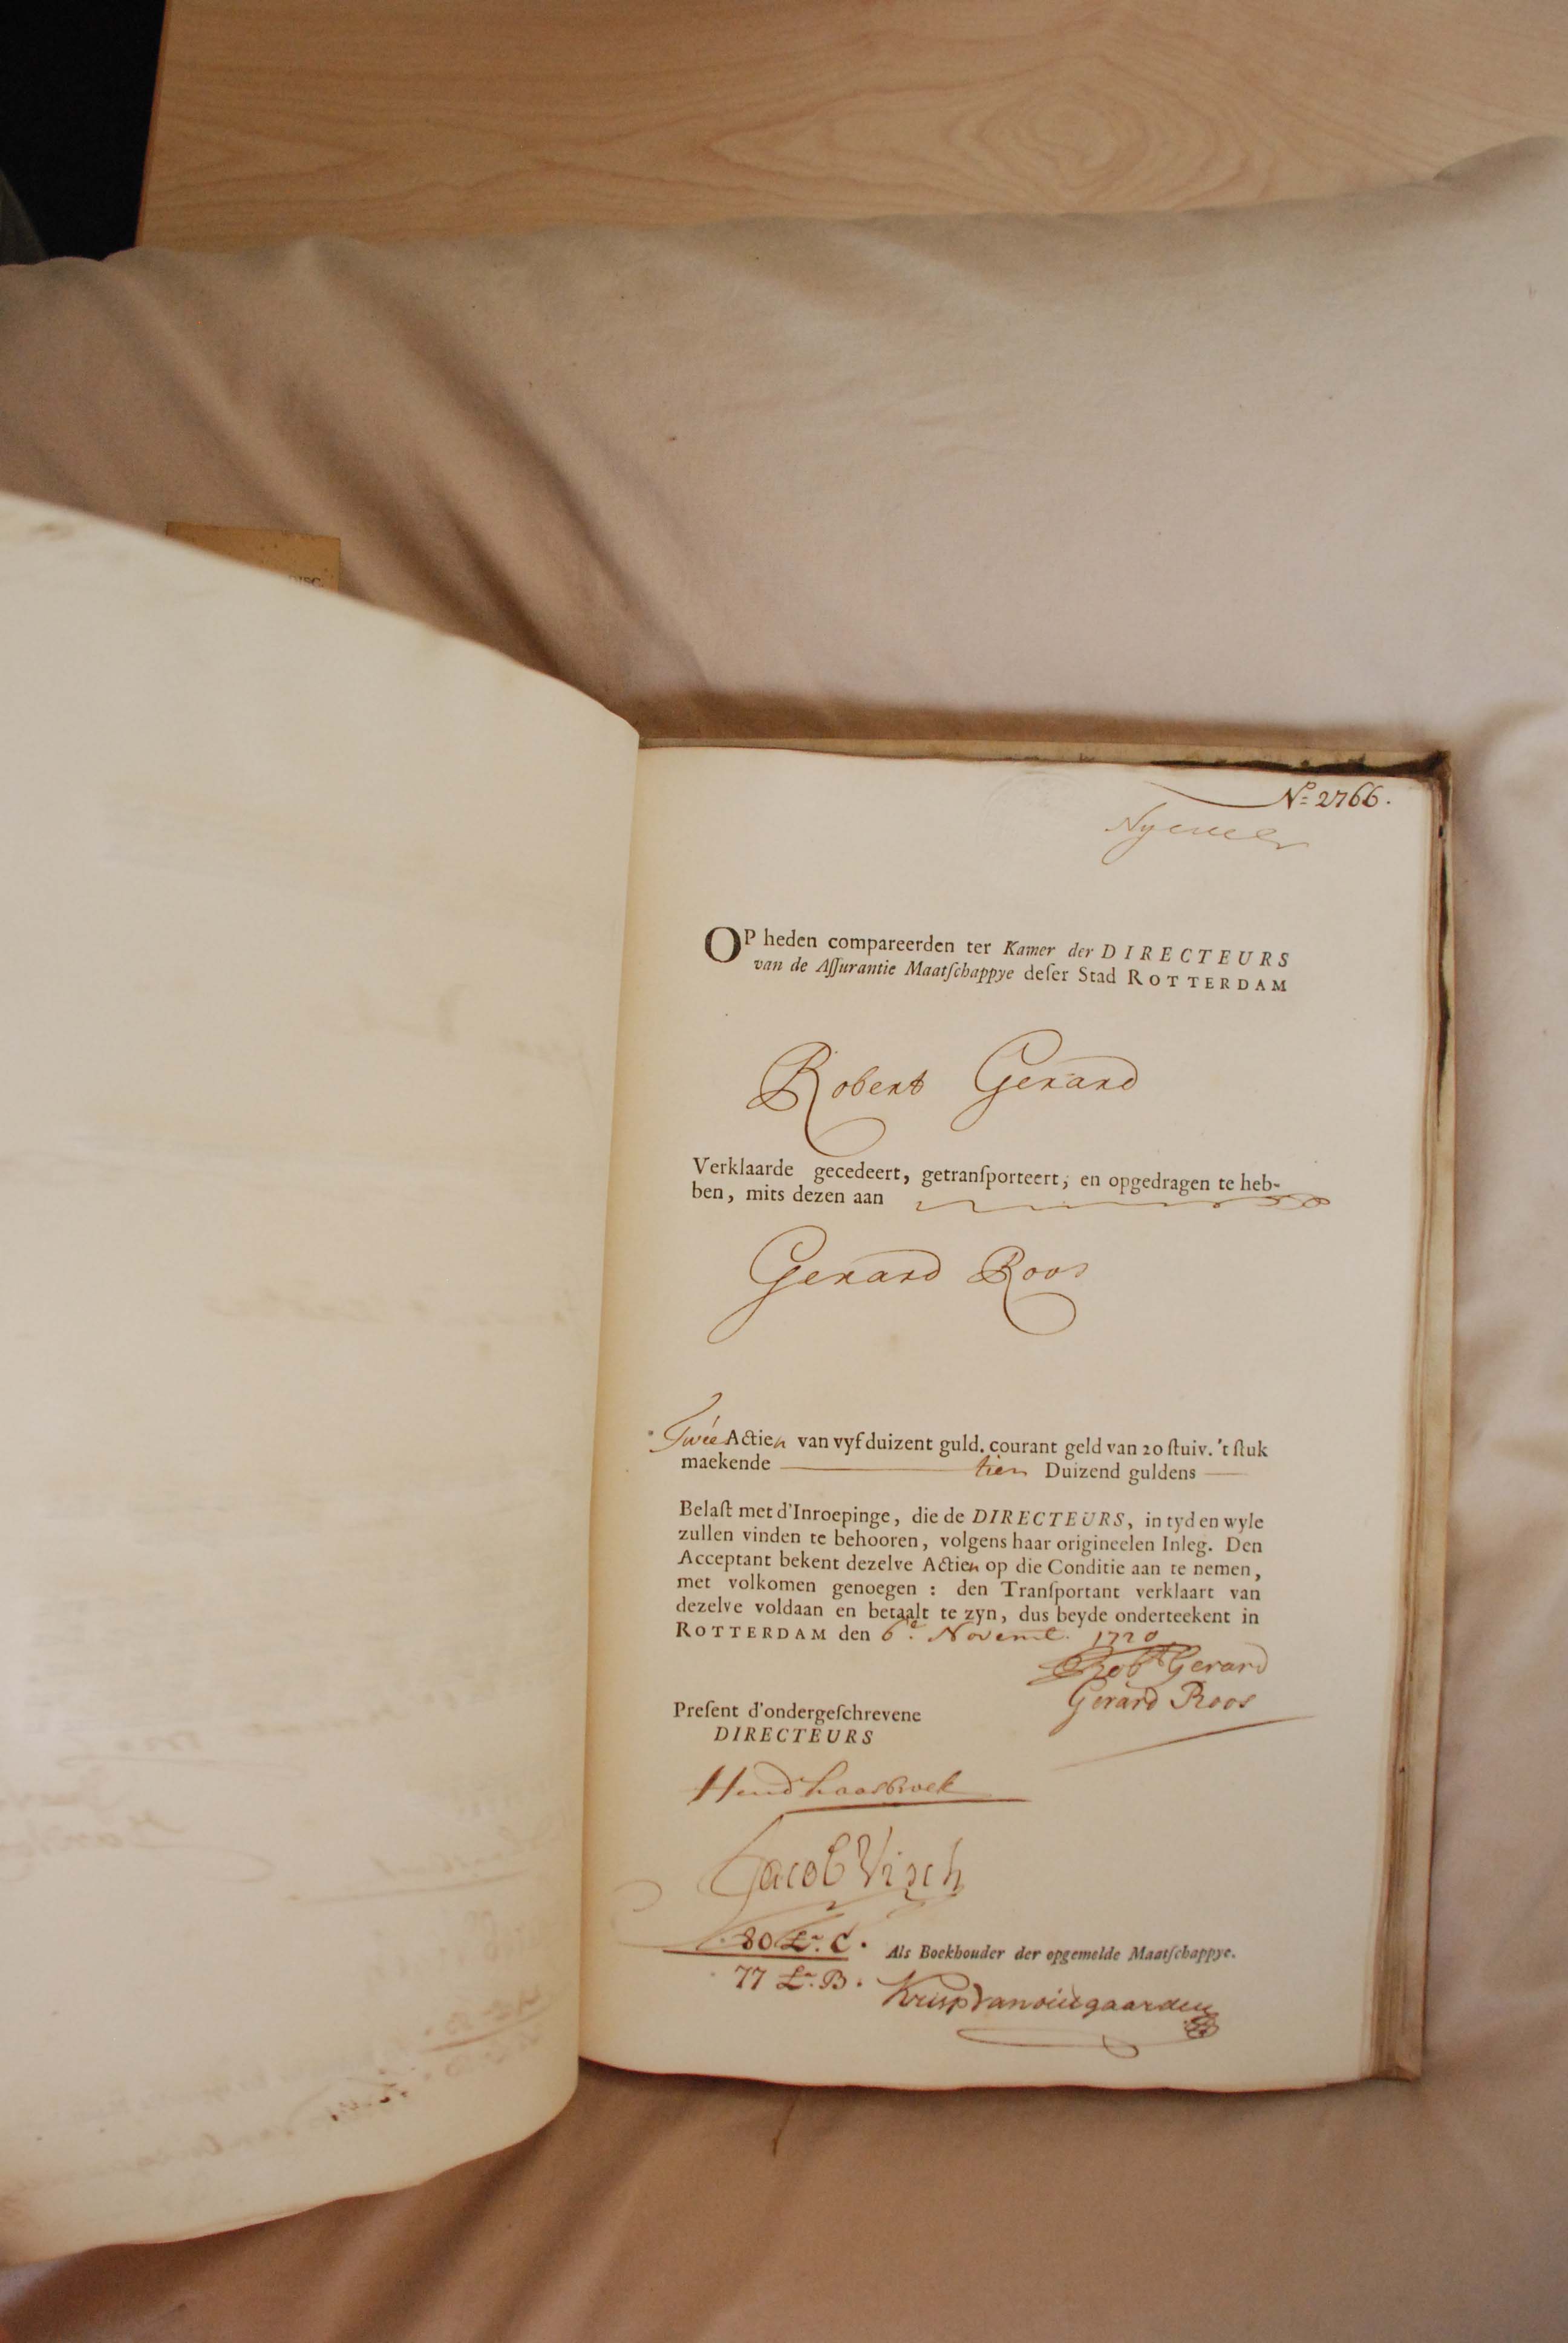 DISC.
No 2766.
OP heden compareerden ter Kamer der DIRECTEURS
van de Aſſurantie Maatſchappye deſer Stad ROTTERDAM
Robert Gerard
Verklaarde gecedeert, getranſporteert, en opgedragen te heb-
ben, mits dezen aan
Gerard Roos
Twée Actien van vyf duizent guld. courant geld van 20 ſtuiv. 't ſtuk
maekende tien Duizend guldens
Belaſt met d'Inroepinge, die de DIRECTEURS, in tyd en wyle
zullen vinden te behooren, volgens haar origineelen Inleg. Den
Acceptant bekent dezelve Actien op die Conditie aan te nemen,
met volkomen genoegen : den Tranſportant verklaart van
dezelve voldaan en betaalt te zyn, dus beyde onderteekent in
ROTTERDAM den 6e. Novemb. 1720
Robt Gerard
Gerard Roos
Preſent d'ondergeſchrevene
DIRECTEURS
Hend haasbroek
Jacob Visch
80 Lr. C.
Als Boekhouder der opgemelde Maatſchappye.
77 Lr. B.
Krisp van outgaarden